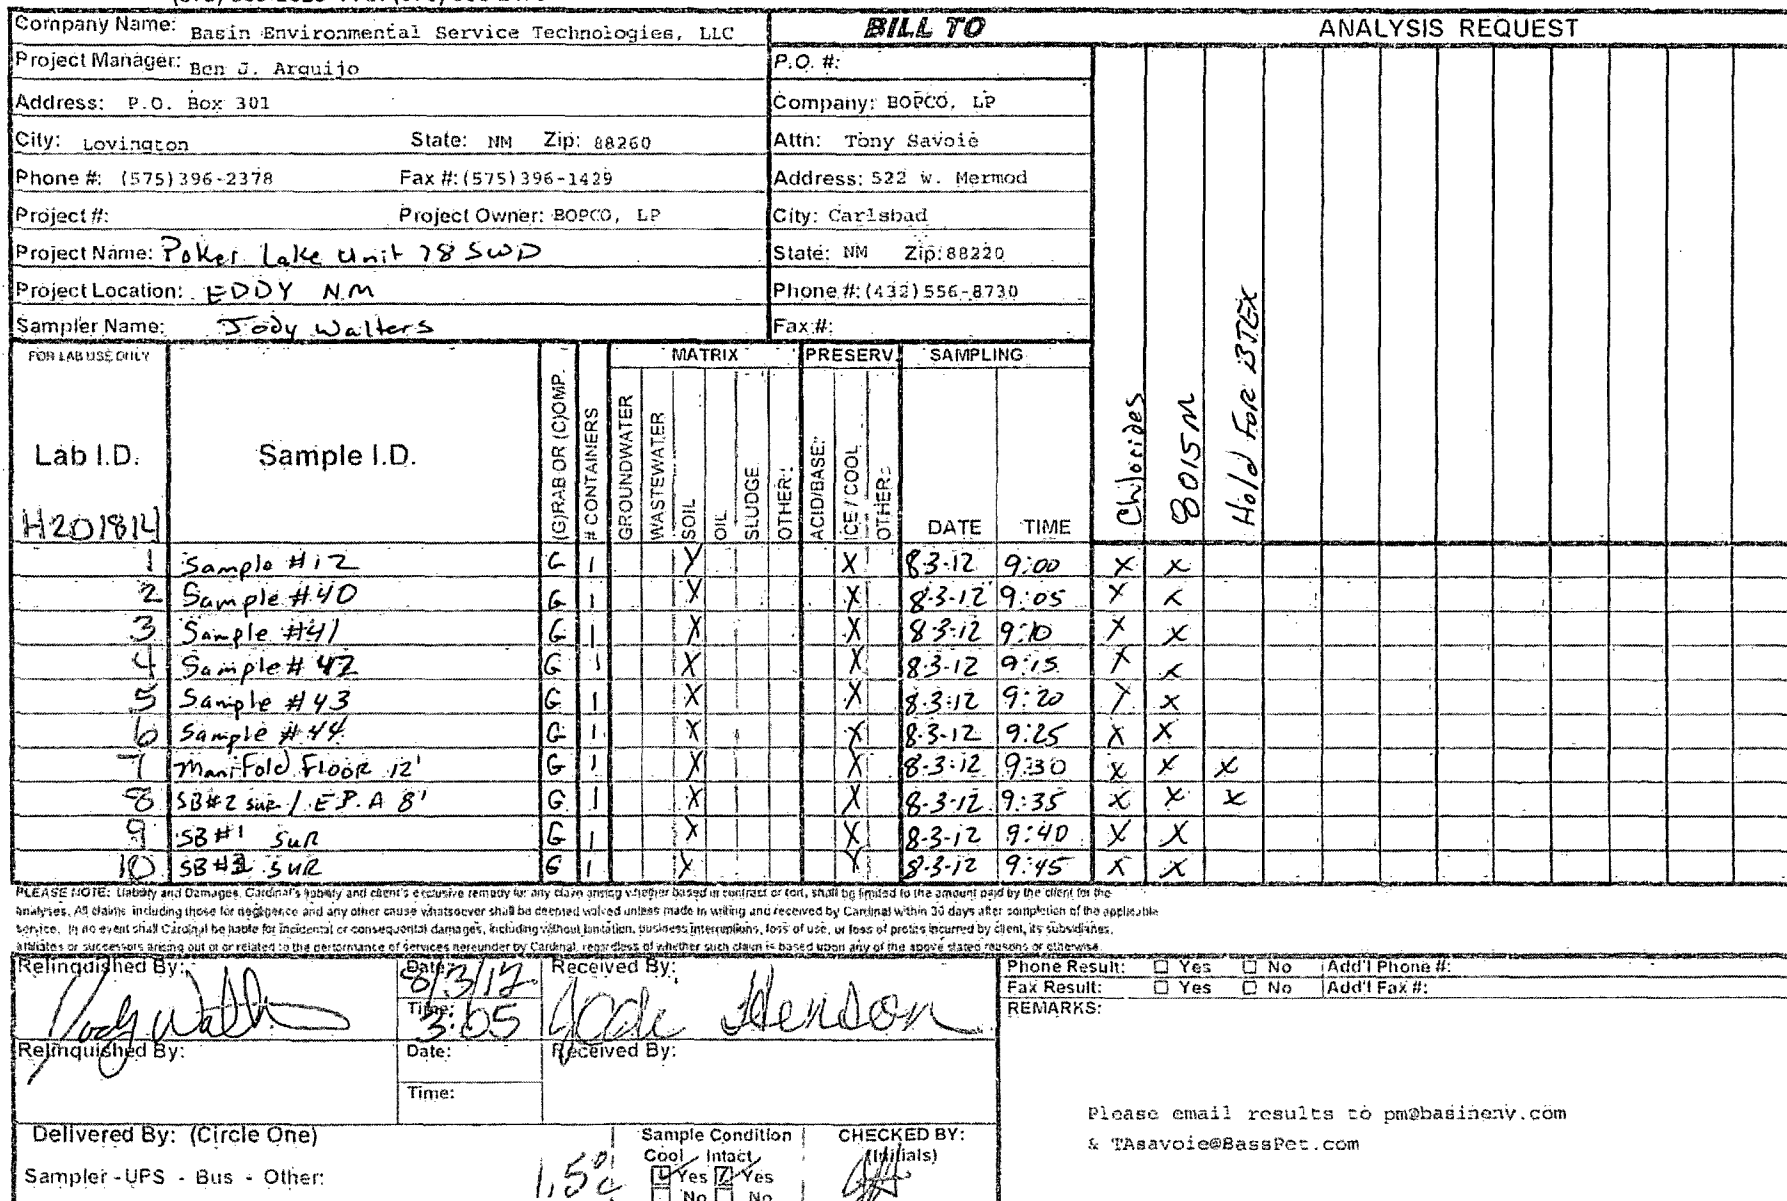 Company Name: Basin Environmental Service Technologies, LLC
BILL TO
ANALYSIS REQUEST
Project Manager: Ben J. Arguijo
P.O. #:
Address: P.O. Box 301
Company: BOPCO, LP
City: Lovington State: NM Zip: 88260
Attn: Tony Savoie
Phone #: (575)396-2378 Fax #: (575)396-1429
Address: 522 W. Mermod
Project #: Project Owner: BOPCO, LP
City: Carlsbad
Project Name: Poker Lake Unit 78 SWD
State: NM Zip: 88220
Project Location: EDDY NM
Phone #: (432)556-8730
Sampler Name: Jody Walters
Fax #:
FOR LAB USE ONLY
Lab I.D.
H201814
Sample I.D.
(G)RAB OR (C)OMP.
# CONTAINERS
MATRIX
GROUNDWATER
WASTEWATER
SOIL
OIL
SLUDGE
OTHER:
PRESERV.
ACID/BASE:
ICE / COOL
OTHER:
SAMPLING
DATE TIME
Chlorides
8015M
Hold For BTEX
1 Sample #12 G 1 X X 8-3-12 9:00 X X
2 Sample #40 G 1 X X 8-3-12 9:05 X X
3 Sample #41 G 1 X X 8-3-12 9:10 X X
4 Sample #42 G 1 X X 8-3-12 9:15 X X
5 Sample #43 G 1 X X 8-3-12 9:20 X X
6 Sample #44 G 1 X X 8-3-12 9:25 X X
7 Manifold Floor 12' G 1 X X 8-3-12 9:30 X X X
8 SB#2 sur / E.P. A 8' G 1 X X 8-3-12 9:35 X X X
9 SB#1 SuR G 1 X X 8-3-12 9:40 X X
10 SB# SUR G 1 X X 8-3-12 9:45 X X
PLEASE NOTE: Liability and Damages. Cardinal's liability and client's exclusive remedy for any claim arising whether based in contract or tort, shall be limited to the amount paid by the client for the
analyses. All claims including those for negligence and any other cause whatsoever shall be deemed waived unless made in writing and received by Cardinal within 30 days after completion of the applicable
service. In no event shall Cardinal be liable for incidental or consequental damages, including without limitation, business interruptions, loss of use, or loss of profits incurred by client, its subsidiaries,
affiliates or successors arising out of or related to the performance of services hereunder by Cardinal, regardless of whether such claim is based upon any of the above stated reasons or otherwise.
Relinquished By: Jody Walters
Date: 8/3/12
Time: 3:05
Received By: Jodi Henson
Phone Result: Yes No Add'l Phone #:
Fax Result: Yes No Add'l Fax #:
REMARKS:
Relinquished By:
Date:
Time:
Received By:
Please email results to pm@basinenv.com
& TAsavoie@BassPet.com
Delivered By: (Circle One)
Sampler - UPS - Bus - Other:
1.5°c
Sample Condition
Cool Intact
Yes Yes
No No
CHECKED BY:
(Initials)